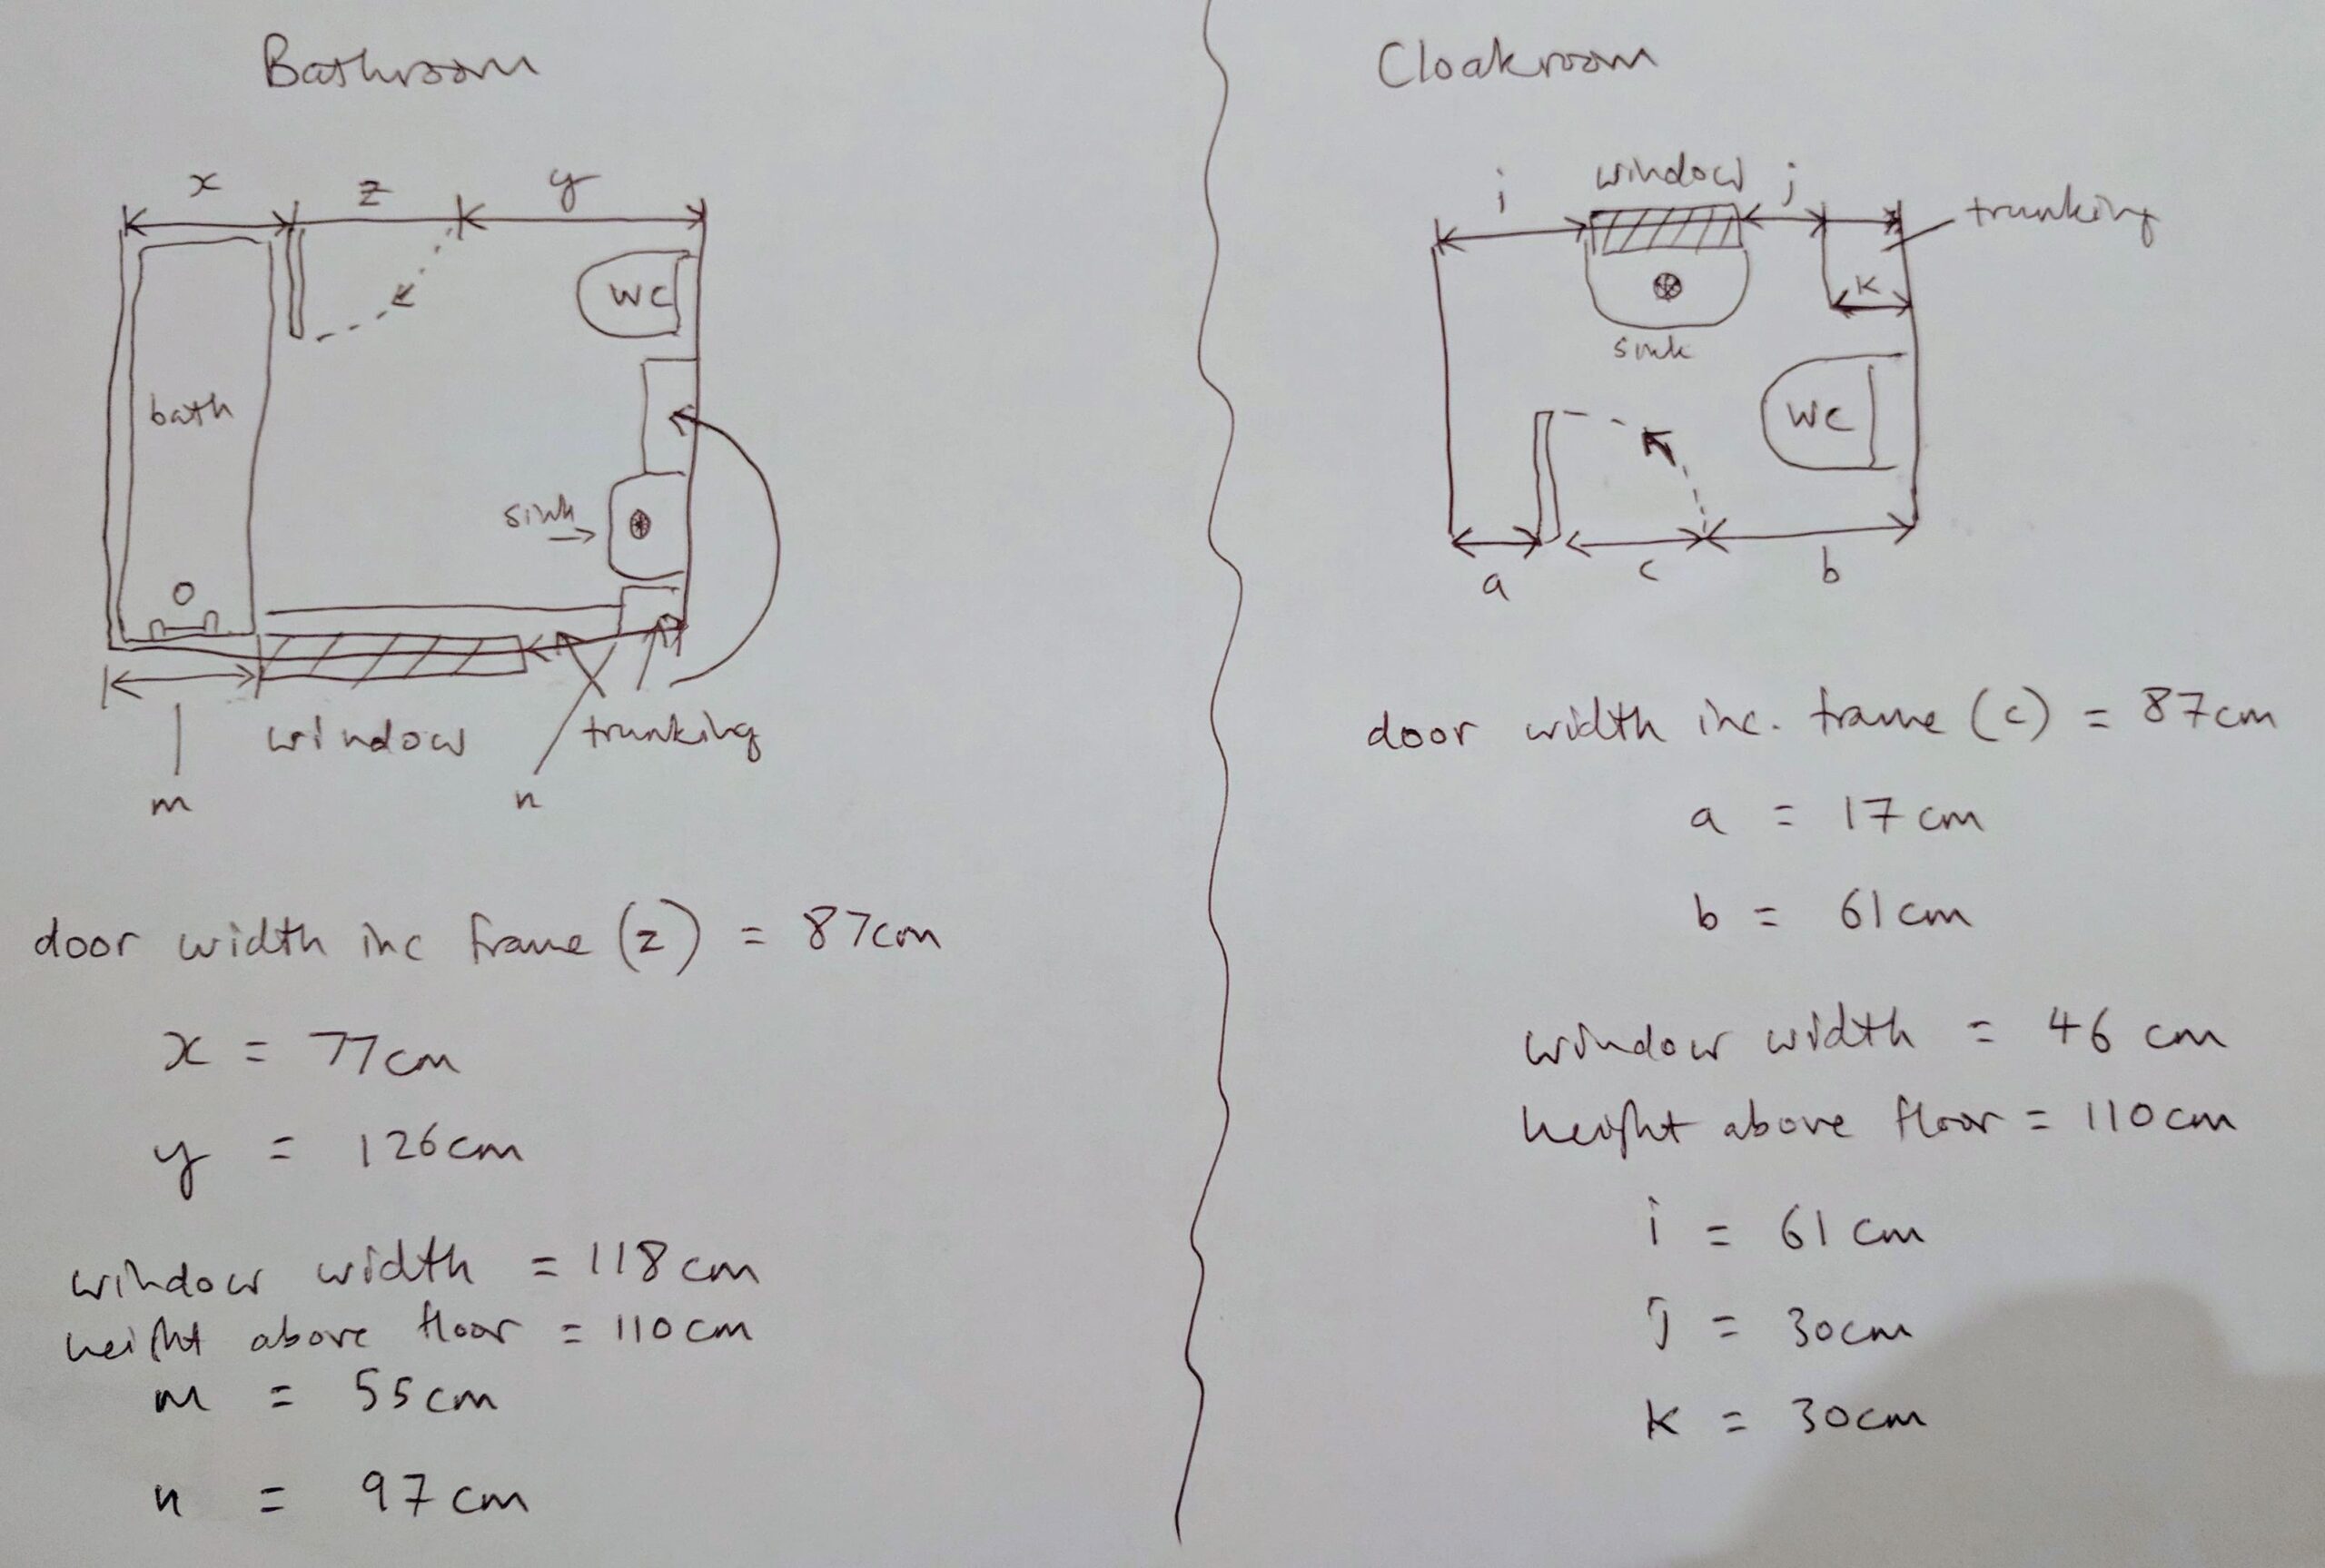 Bathroom
x z y
WC
bath
sink
window trunking
m n
door width inc frame (z) = 87cm
x = 77cm
y = 126cm
window width = 118cm
height above floor = 110cm
m = 55cm
n = 97cm
Cloakroom
i window j trunking
k
sink
WC
a c b
door width inc. frame (c) = 87cm
a = 17cm
b = 61cm
window width = 46 cm
height above floor = 110cm
i = 61cm
j = 30cm
k = 30cm